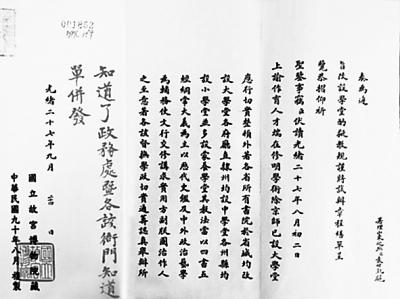 奏為遵
旨改設學堂酌擬教規謹將試辦章程繕單呈
覽恭摺仰祈
聖鑒事竊臣伏讀光緒二十七年八月初二日
上諭作育人才端在修明學術除京師已設大學堂
應行切實整頓外著各省所有書院於省城均改
設大學堂各府廳直隸州均設中學堂各州縣均
設小學堂並多設蒙養學堂其教法當以四書五
經綱常大義為主以歷代史鑑及中外政治藝學
為輔務使文行交修講求實用方副朕圖治作人
之至意著各該督撫學政切實通籌認真舉辦所
知道了政務處暨各該衙門知道
單併發
光緒二十七年九月 日
國立故宮博物院藏
中華民國九十年八月複製